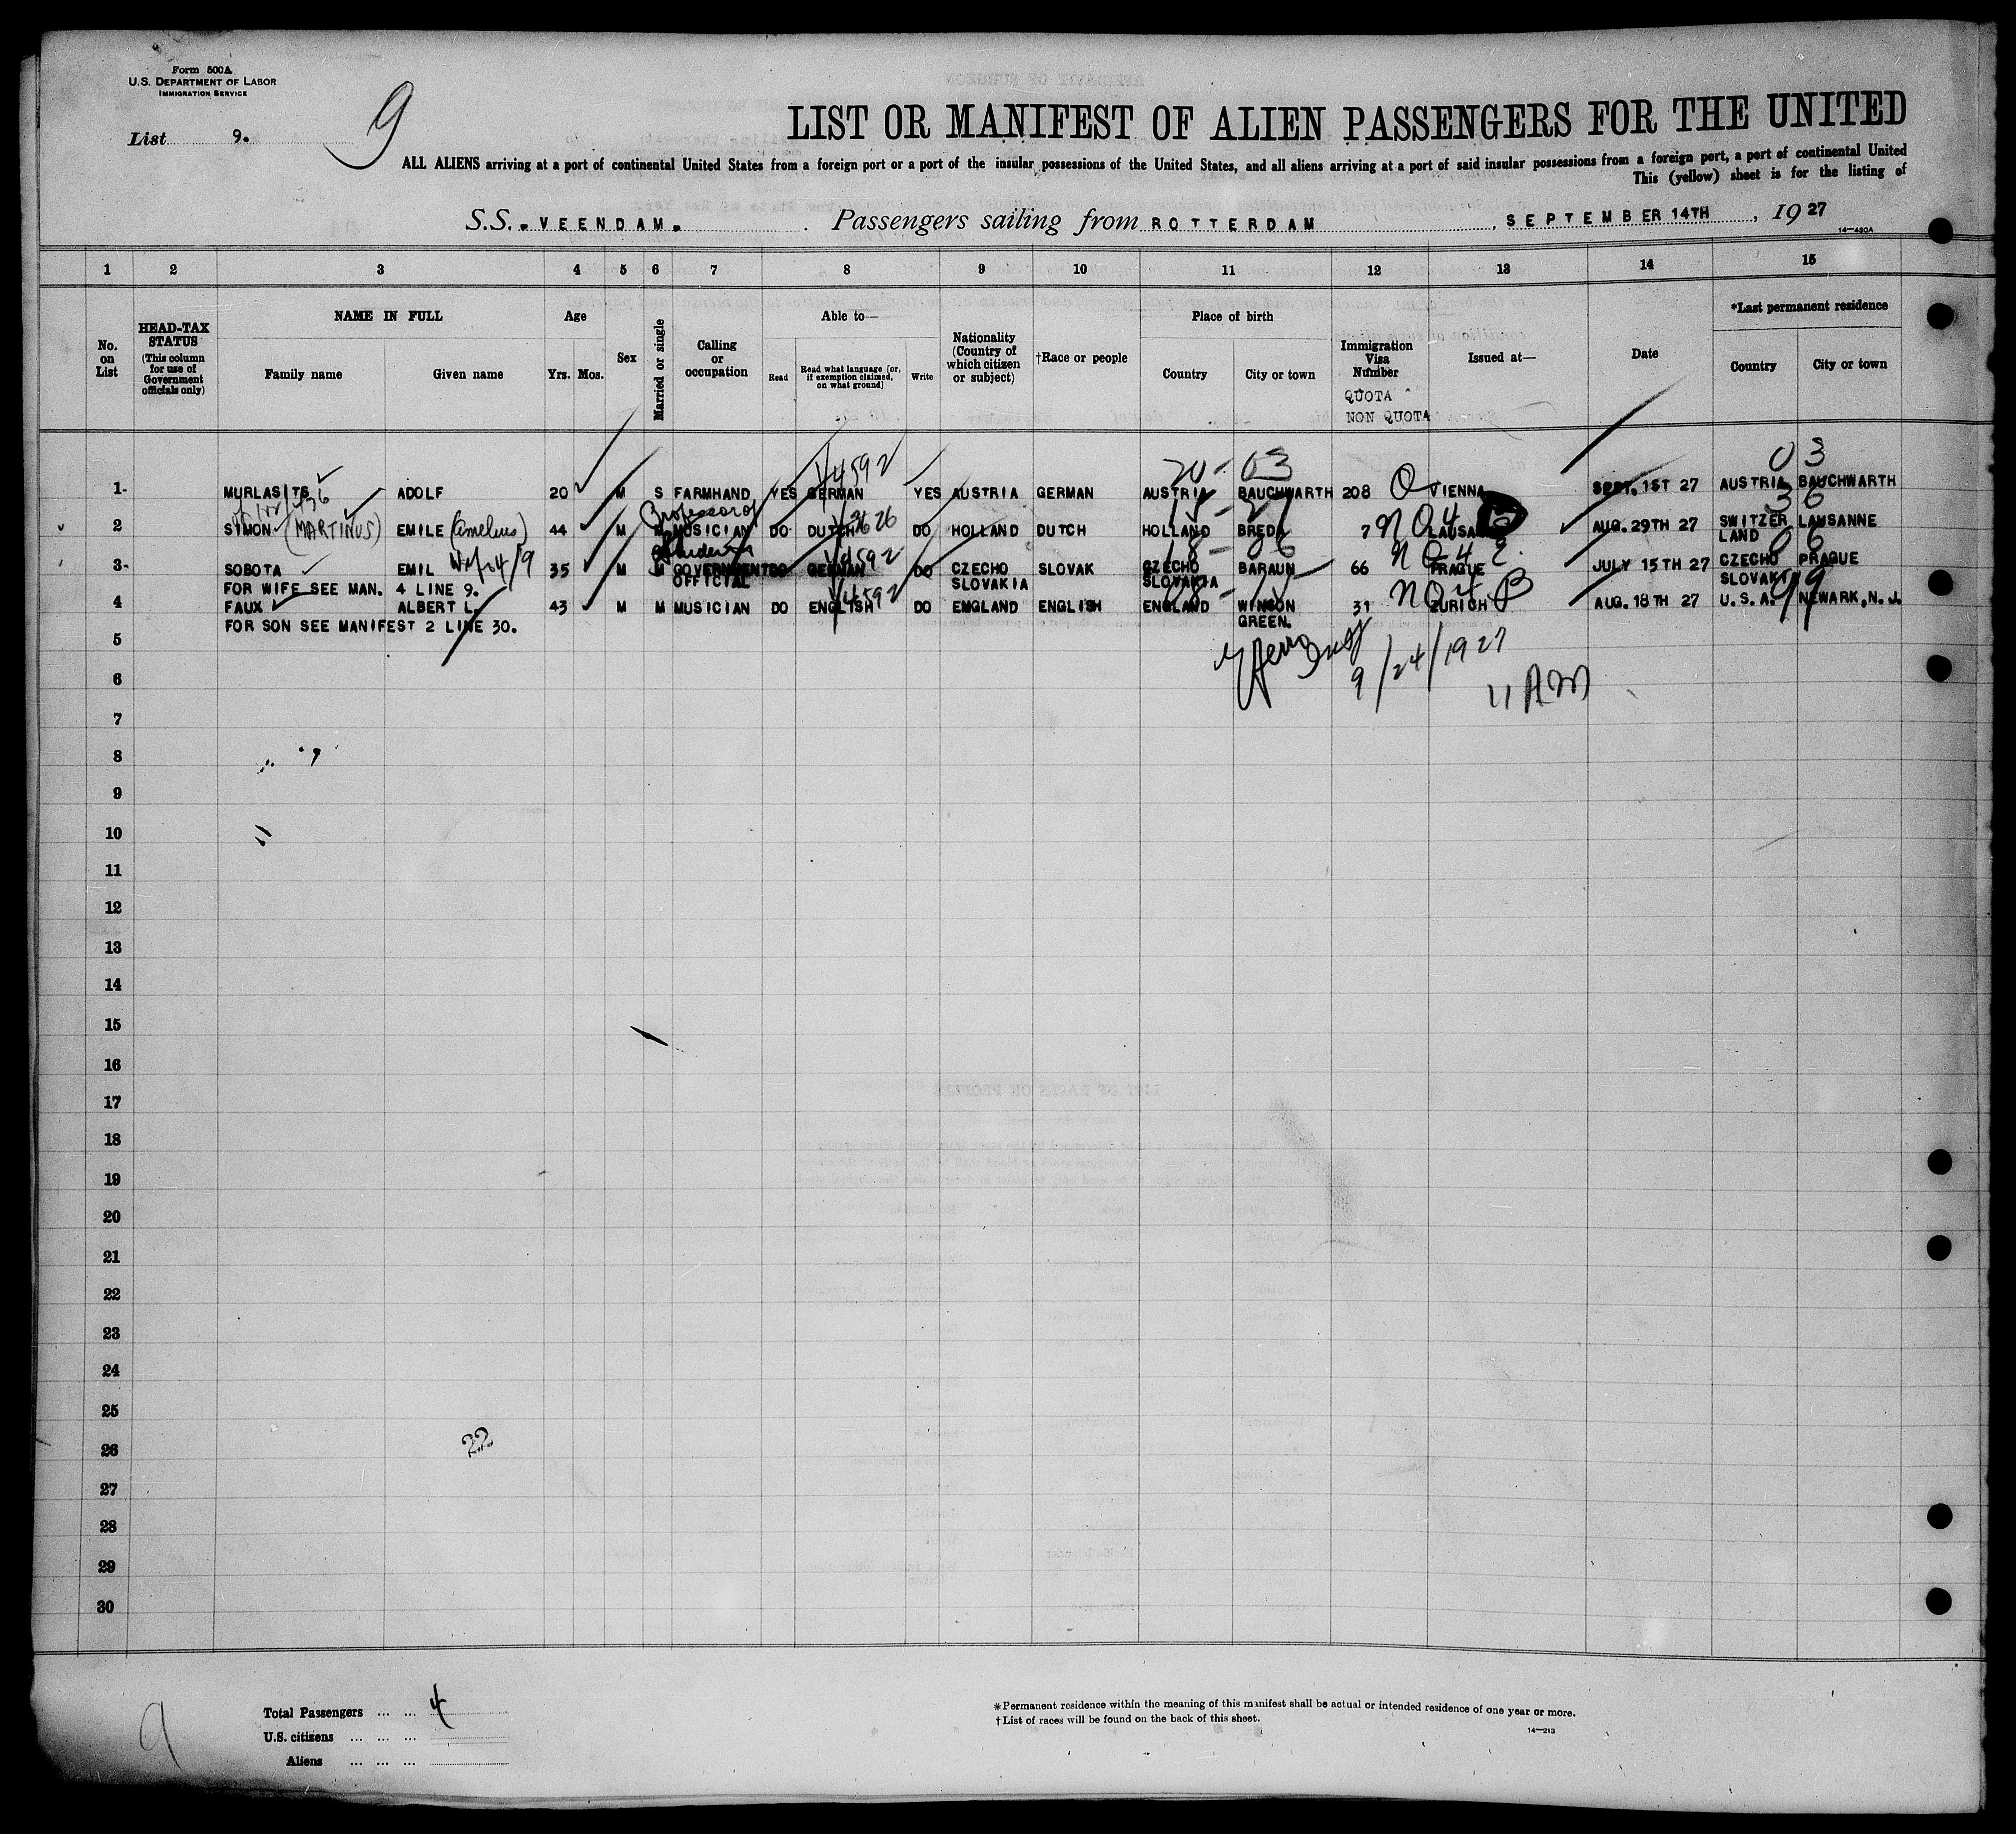 Form 500A
U.S. DEPARTMENT OF LABOR
IMMIGRATION SERVICE
List 9.
9
LIST OR MANIFEST OF ALIEN PASSENGERS FOR THE UNITED
ALL ALIENS arriving at a port of continental United States from a foreign port or a port of the insular possessions of the United States, and all aliens arriving at a port of said insular possessions from a foreign port, a port of continental United
This (yellow) sheet is for the listing of
S.S. VEENDAM. Passengers sailing from ROTTERDAM, SEPTEMBER 14TH, 1927
14—430A
1 2 3 4 5 6 7 8 9 10 11 12 13 14 15
No. on List
HEAD-TAX STATUS (This column for use of Government officials only)
NAME IN FULL
Family name Given name
Age
Yrs. Mos.
Sex
Married or single
Calling or occupation
Able to—
Read Read what language [or, if exemption claimed, on what ground] Write
Nationality (Country of which citizen or subject)
†Race or people
Place of birth
Country City or town
Immigration Visa Number
QUOTA
NON QUOTA
Issued at—
Date
*Last permanent residence
Country City or town
14592 20-03 03
1- MURLASITS ADOLF 20 M S FARMHAND YES GERMAN YES AUSTRIA GERMAN AUSTRIA BAUCHWARTH 208 Q VIENNA SEPT. 1ST 27 AUSTRIA BAUCHWARTH
Professor of 36
2 SIMON (MARTINUS) EMILE (Amelius) 44 M M MUSICIAN DO DUTCH DO HOLLAND DUTCH HOLLAND BREDA 7 NQ4 LAUSANNE AUG. 29TH 27 SWITZERLAND LAUSANNE
14592 06
3- SOBOTA EMIL 35 M M GOVERNMENT OFFICIAL DO GERMAN DO CZECHO SLOVAKIA SLOVAK CZECHO SLOVAKIA BARAUN 66 NQ-4 E. PRAGUE JULY 15TH 27 CZECHO SLOVAKIA PRAGUE
FOR WIFE SEE MAN. 4 LINE 9.
14592 99
4 FAUX ALBERT L. 43 M M MUSICIAN DO ENGLISH DO ENGLAND ENGLISH ENGLAND WINSON GREEN. 31 NQ4 B ZURICH AUG. 18TH 27 U.S.A. NEWARK, N.J.
FOR SON SEE MANIFEST 2 LINE 30.
5
9/24/1927
6
11 AM
7
8
9
10
11
12
13
14
15
16
17
18
19
20
21
22
23
24
25
26
22
27
28
29
30
Total Passengers ... ... 4
U.S. citizens ... ... ...
Aliens ... ... ...
9
*Permanent residence within the meaning of this manifest shall be actual or intended residence of one year or more.
†List of races will be found on the back of this sheet.
14—213